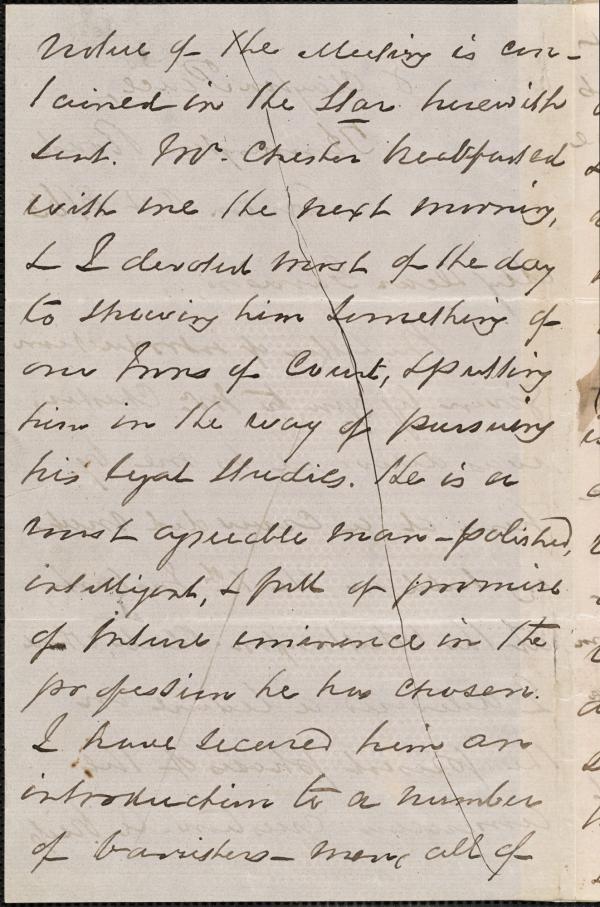 notice of the Meeting is con-
tained in the Star herewith
sent. Mr. Chester breakfasted
with me the next morning,
& I devoted most of the day
to showing him something of
our Inns of Court, & putting
him in the way of pursuing
his legal studies. He is a
most agreeable man - polished,
intelligent, & full of promise
of future eminence in the
profession he has chosen.
I have secured him an
introduction to a number
of barristers - men, all of